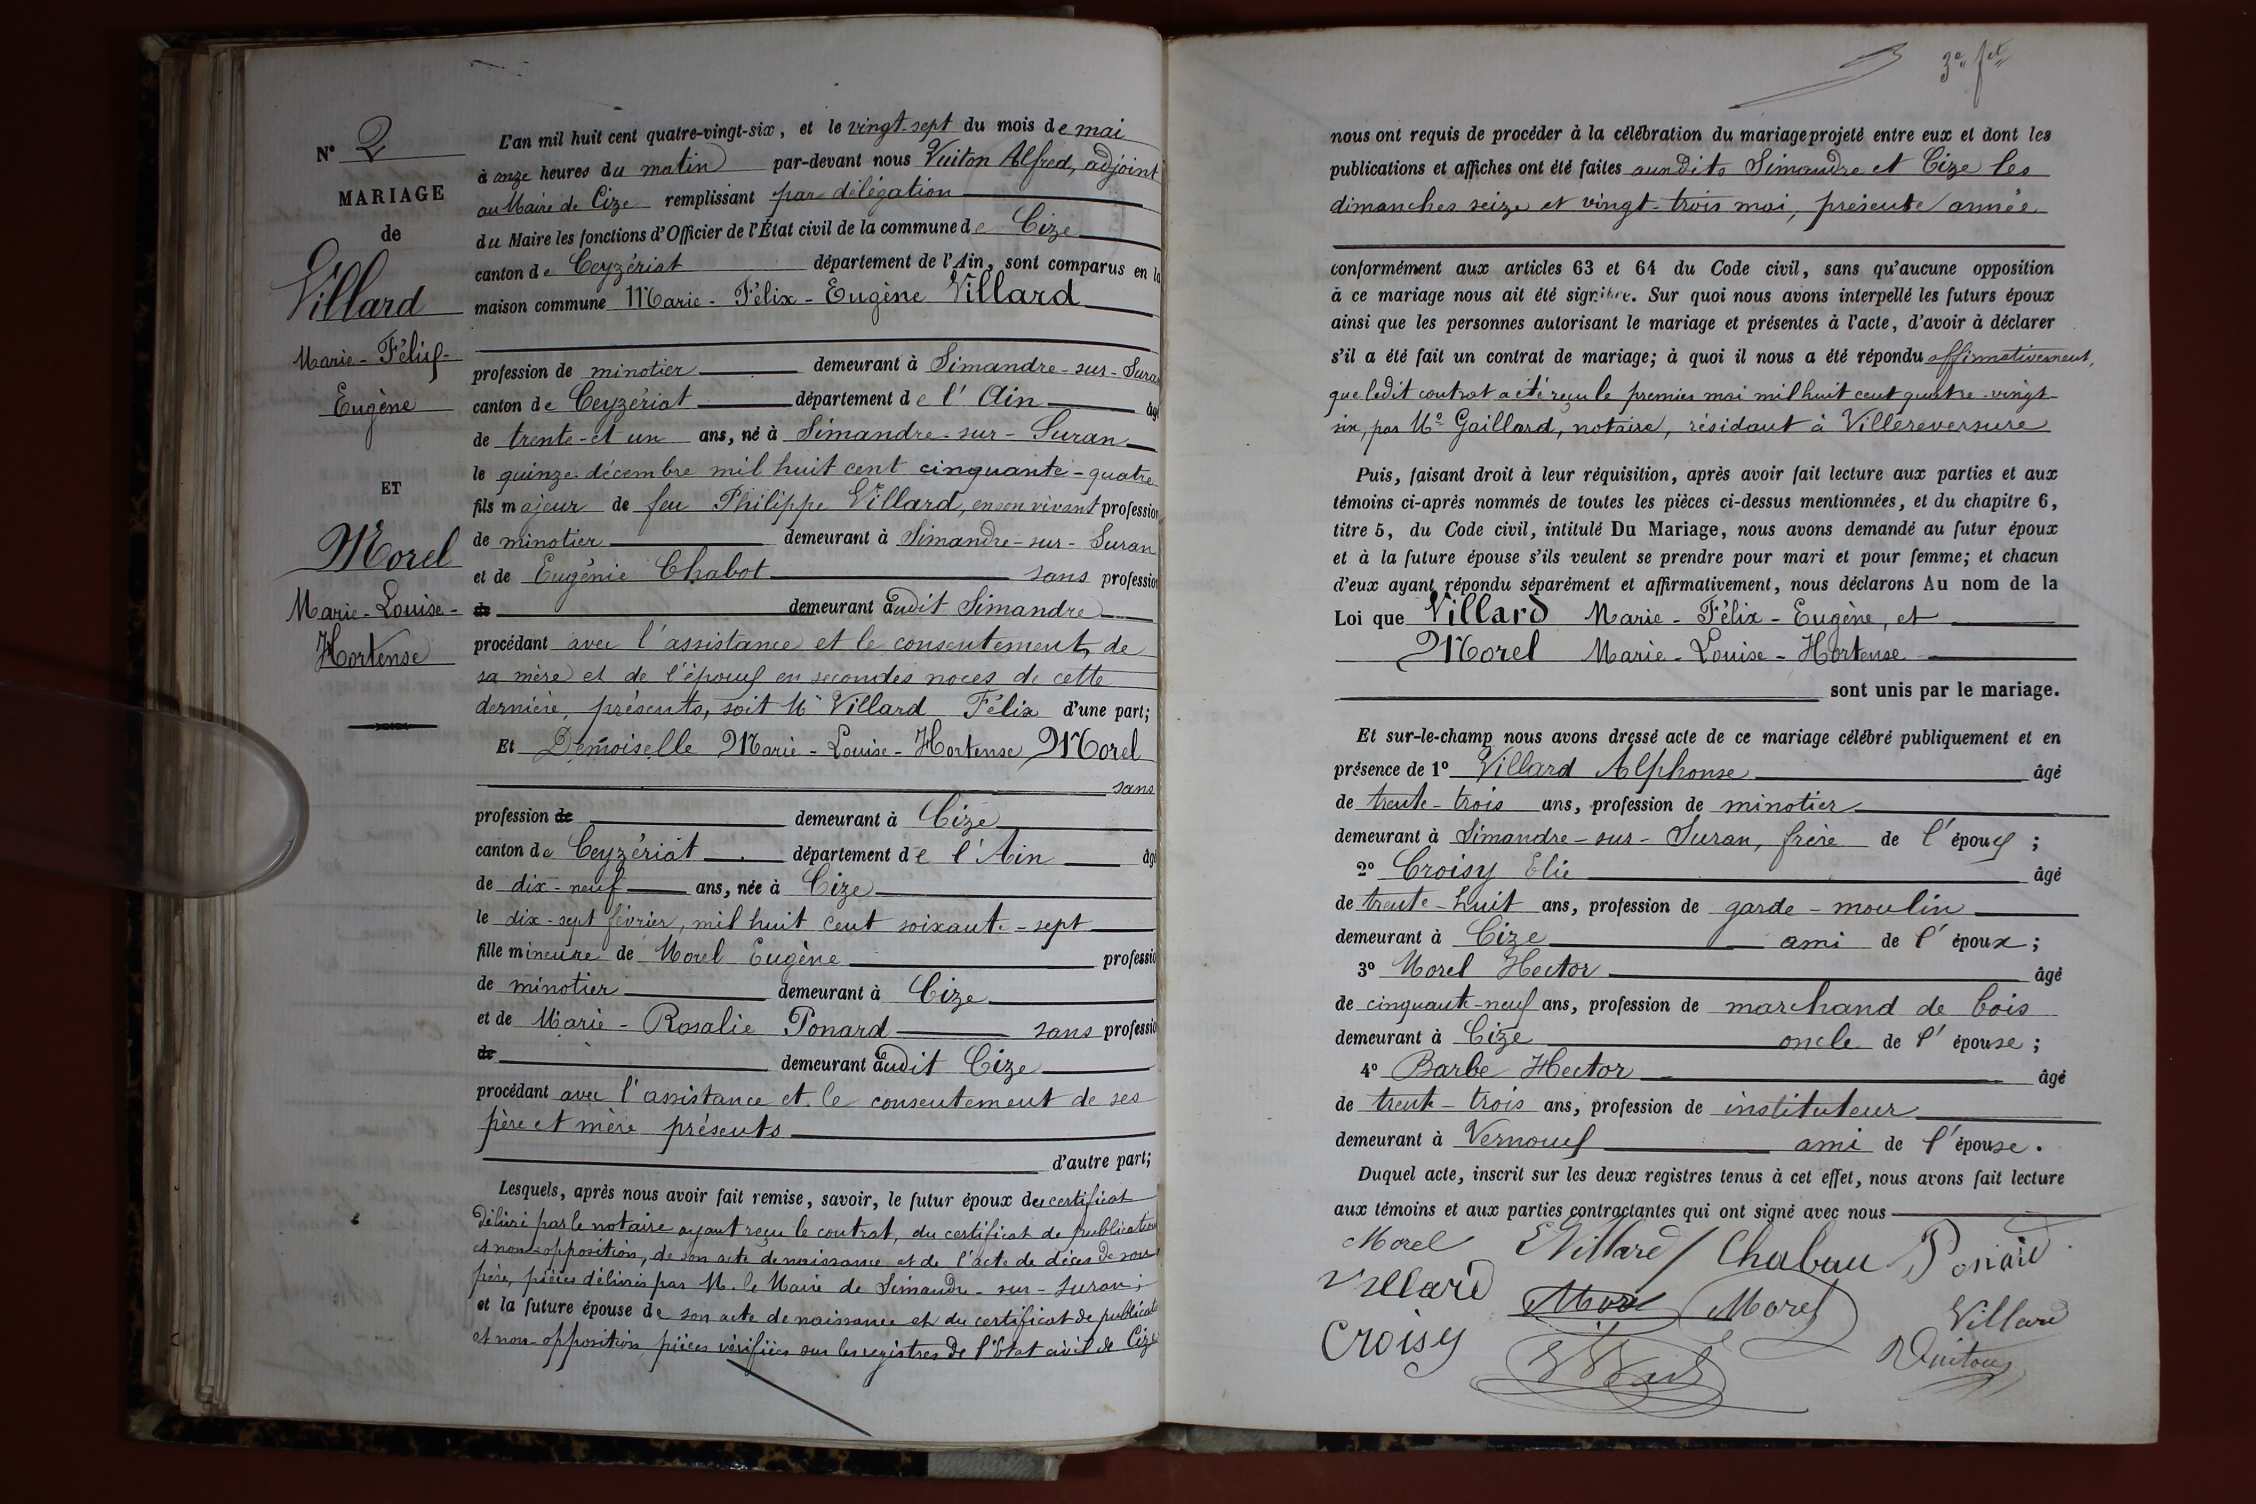 N° 2
MARIAGE
de
Villard
Marie-Félix-
Eugène
ET
Morel
Marie-Louise-
Hortense
L'an mil huit cent quatre-vingt-six, et le vingt-sept du mois de mai
à onze heures du matin par-devant nous Vuiton Alfred, adjoint
au Maire de Cize remplissant par délégation
du Maire les fonctions d'Officier de l'État civil de la commune de Cize
canton de Ceyzériat département de l'Ain, sont comparus en la
maison commune Marie-Félix-Eugène Villard
profession de minotier demeurant à Simandre-sur-Suran
canton de Ceyzériat département de l'Ain âgé
de trente-et un ans, né à Simandre-sur-Suran
le quinze décembre mil huit cent cinquante-quatre
fils majeur de feu Philippe Villard, en son vivant profession
de minotier demeurant à Simandre-sur-Suran
et de Eugénie Chabot sans profession
de demeurant audit Simandre
procédant avec l'assistance et le consentement de
sa mère et de l'époux en secondes noces de cette
dernière, présents, soit Mr Villard Félix d'une part;
Et Demoiselle Marie-Louise-Hortense Morel
sans
profession de demeurant à Cize
canton de Ceyzériat département de l'Ain âgé
de dix-neuf ans, née à Cize
le dix-sept février, mil huit cent soixante-sept
fille mineure de Morel Eugène professio
de minotier demeurant à Cize
et de Marie-Rosalie Ponard sans professio
de demeurant audit Cize
procédant avec l'assistance et le consentement de ses
père et mère présents
d'autre part;
Lesquels, après nous avoir fait remise, savoir, le futur époux du certificat
délivré par le notaire ayant reçu le contrat, du certificat de publication
et non-opposition, de son acte de naissance et de l'acte de décès de son
père, pièces délivrées par M. le Maire de Simandre-sur-Suran;
et la future épouse de son acte de naissance et du certificat de publicat
et non-opposition, pièces vérifiées sur les registres de l'État civil de Cize
3e fet
nous ont requis de procéder à la célébration du mariage projeté entre eux et dont les
publications et affiches ont été faites auxdits Simandre et Cize les
dimanches seize et vingt-trois mai, présente année
conformément aux articles 63 et 64 du Code civil, sans qu'aucune opposition
à ce mariage nous ait été signifiée. Sur quoi nous avons interpellé les futurs époux
ainsi que les personnes autorisant le mariage et présentes à l'acte, d'avoir à déclarer
s'il a été fait un contrat de mariage; à quoi il nous a été répondu affirmativement,
que ledit contrat a été reçu le premier mai mil huit cent quatre-vingt-
six, par Me Gaillard, notaire, résidant à Villereversure
Puis, faisant droit à leur réquisition, après avoir fait lecture aux parties et aux
témoins ci-après nommés de toutes les pièces ci-dessus mentionnées, et du chapitre 6,
titre 5, du Code civil, intitulé Du Mariage, nous avons demandé au futur époux
et à la future épouse s'ils veulent se prendre pour mari et pour femme; et chacun
d'eux ayant répondu séparément et affirmativement, nous déclarons Au nom de la
Loi que Villard Marie-Félix-Eugène, et
Morel Marie-Louise-Hortense
sont unis par le mariage.
Et sur-le-champ nous avons dressé acte de ce mariage célébré publiquement et en
présence de 1° Villard Alphonse âgé
de trente-trois ans, profession de minotier
demeurant à Simandre-sur-Suran, frère de l'époux;
2° Croisy Elie âgé
de trente-huit ans, profession de garde-moulin
demeurant à Cize ami de l'époux;
3° Morel Hector âgé
de cinquante-neuf ans, profession de marchand de bois
demeurant à Cize oncle de l'épouse;
4° Barbe Hector âgé
de trente-trois ans, profession de instituteur
demeurant à Vernoux ami de l'épouse.
Duquel acte, inscrit sur les deux registres tenus à cet effet, nous avons fait lecture
aux témoins et aux parties contractantes qui ont signé avec nous
Morel EVillard Chabau Ponard
Villard Morel Morel Villard
Croisy Vuiton